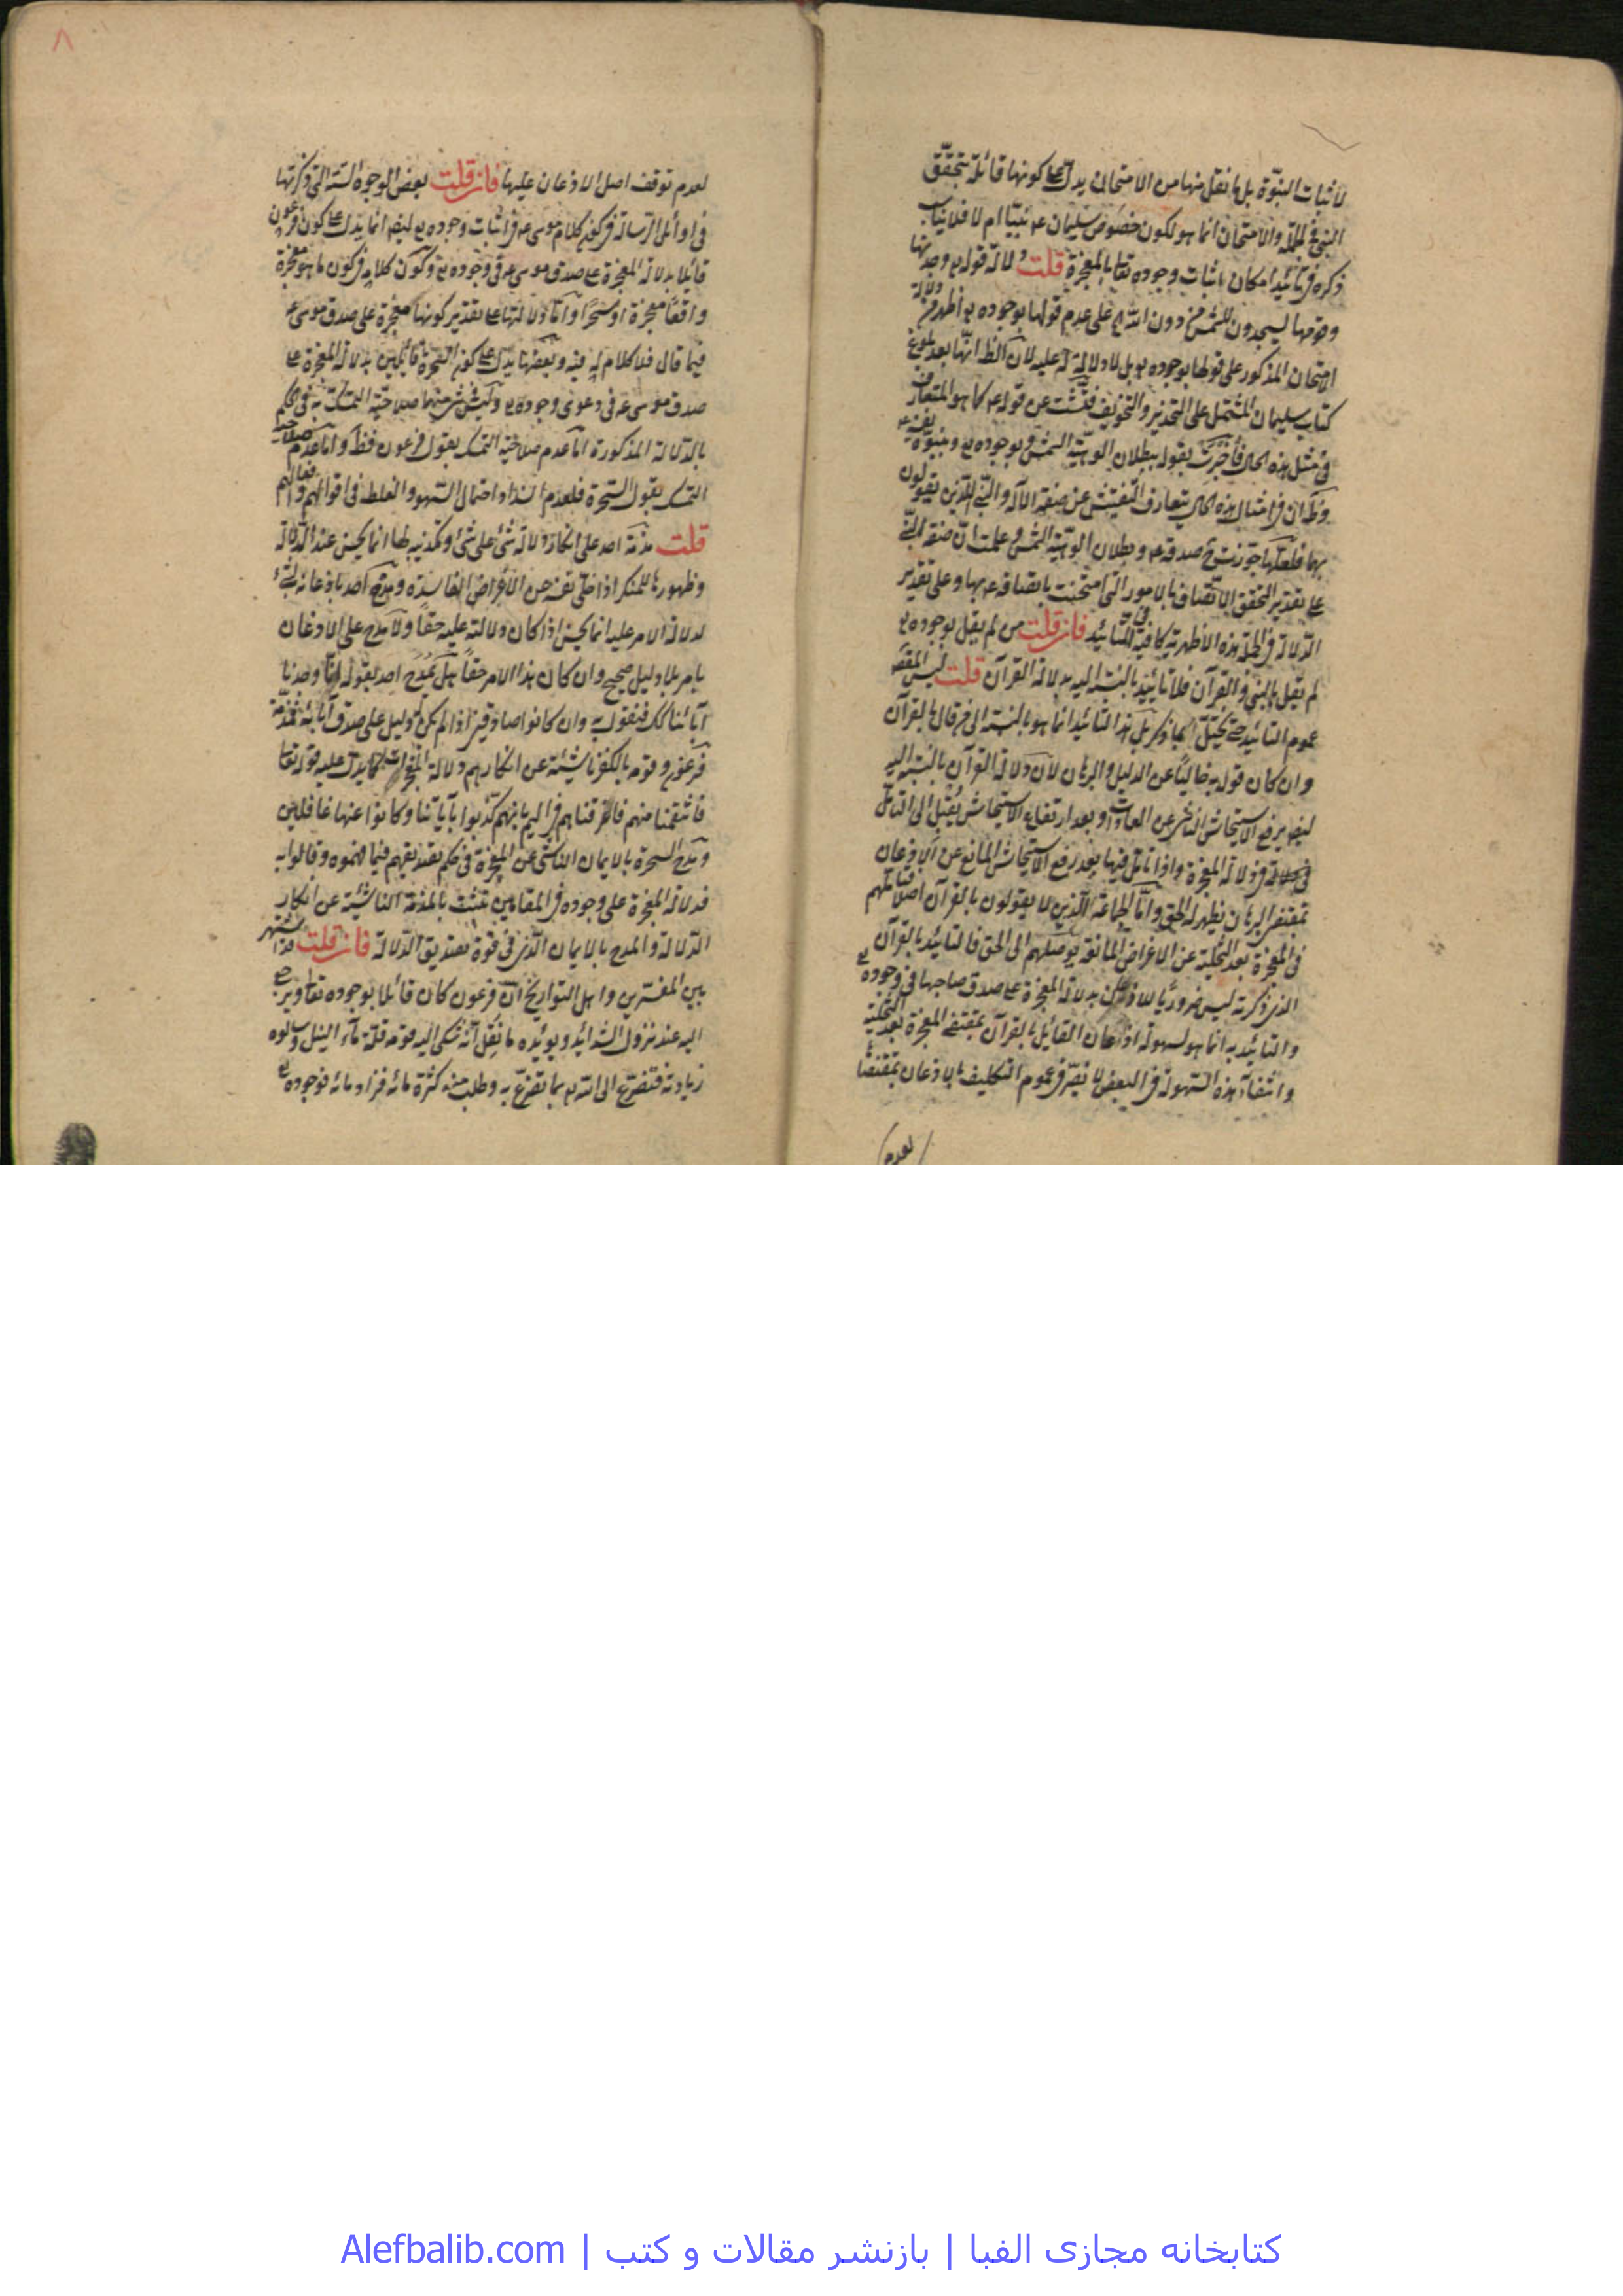 لاثبات النبوّة بل ما نقل منها من الامتحان يدل على كونها قائلة بتحقّق
النبي في الجملة والامتحان انما هو لكون خصوص سليمان عم نبيّا ام لا فلا ينا
ذكره في تأييد امكان اثبات وجوده تعا بالمعجزة قلت دلالة قوله تع وجدتها
وقومها ليسجدون للشمس من دون الله على عدم قولها بوجوده تع اظهر من دلالة
الامتحان المذكور على قولها بوجوده تع بل لا دلالة له عليه لان الظ انها بعد بلوغ
كتاب سليمان المشتمل على التحذير والتخويف فتّشت عن قوله عم كما هو المتعارف
في مثل هذه الحال فأخبرت بقوله ببطلان الوهيّة الشمس وبوجوده تع وبنبوّة نفسه عم
وظ ان في امثال هذه الحال يتعارف التفتيش عن صفة الآله والنبي اللذين يقولون
بها فلعلها جوّزت صدقه عم وبطلان الوهيّة الشمس وعلمت ان صفة النبي
على تقدير التحقق الاتصاف بالامور التي امتحنت باتصافه عم بها وعلى تقدير
الدلالة في الجملة هذه الاظهرية كافية في التأييد فان قلت من لم يقل بوجوده تع
لم يقل بالنبي والقرآن فلا تأييد بالنسبة اليه بدلالة القرآن قلت ليس المقص
عموم التأييد حتى يختل بما ذكر بل هذا التأييد انما هو بالنسبة الى من قال بالقرآن
وان كان قوله به خاليًا عن الدليل والبرهان لان دلالة القرآن بالنسبة اليه
ايضا يرفع الاستيحاش الناشي عن العادات وبعد ارتفاع الاستيحاش يُقبل الى التأمل
في دلالة المعجزة واذا تأمل فيها بعد رفع الاستيحاش المانع عن الاذعان
بمقتضى البرهان يظهر له الحق وامّا الجماعة الذين لا يقولون بالقرآن اصلا فتأملهم
في المعجزة بعد التخلية عن الاغراض المانعة يوصلهم الى الحق فالتأييد بالقرآن
الذي ذكرته ليس ضروريًا للاذعان بدلالة المعجزة على صدق صاحبها في وجوده تع
والتأييد به انما هو لسهولة اذعان القايل بالقرآن بمقتضى المعجزة بعد التخلية
وانتفاء هذه السهولة في البعض لا تضرّ في عموم التكليف بالاذعان بمقتضاها
لعدم
٨
لعدم توقف اصل الاذعان عليها فان قلت بعض الوجوه الستة التي ذكرتها
في اوائل الرسالة في كون كلام موسى عم في اثبات وجوده تع ايضا انما يدل على كون فرعون
قائلا بدلالة المعجزة على صدق موسى عم في وجوده تع وكون كلامه في كون ما هو معجزة
واقعًا معجزة او سحرًا وامّا دلالتها على تقدير كونها معجزة على صدق موسى عم
فيما قال فلا كلام له فيه وبعضها يدل على كون السحرة قائلين بدلالة المعجزة على
صدق موسى عم في دعوى وجوده تع وليس شئ منهما صلاحية التمسك به في الحكم
بالدلالة المذكورة امّا عدم صلاحية التمسك بقول فرعون فظ وامّا عدم صلاحية
التمسك بقول السحرة فلعدم السداد احتمال السهو والغلط في اقوالهم وافعالهم
قلت مذمّة احد على انكار دلالة شئ على شئ وتكذيبه لها انما يحسن عند الدلالة
وظهورها للمنكر اذا خلّى نفسه عن الاغراض الفاسدة ومدح احد باذعانه لشئ
لدلالة الامر عليه انما يحسن اذا كان دلالته عليه حقًا ولا مدح على الاذعان
بامر بلا دليل صحيح وان كان هذا الامر حقًا هل يُمدح احد بقوله انّا وجدنا
آبائنا كك فنقول به وان كانوا صادقين اذا لم يكن له دليل على صدق آبائه فمذمّة
فرعون وقومه بالكفر ناشئة عن انكارهم دلالة المعجزات كما يدل عليه قوله تعا
فانتقمنا منهم فاغرقناهم في اليم بانهم كذّبوا بآياتنا وكانوا عنها غافلين
ومدح السحرة بالايمان الناشئ عن المعجزة في حكم تصديقهم فيما فهموه وقالوا به
فدلالة المعجزة على وجوده في المقامين تثبت بالمذمّة الناشئة عن انكار
الدلالة والمدح بالايمان الذي في قوة تصديق الدلالة فان قلت قد اشتهر
بين المفسّرين واهل التواريخ ان فرعون كان قائلا بوجوده تعا
اليه عند نزول الشدائد ويؤيّده ما نُقل انّه شكى اليه قومه قلّة ماء النيل وسألوه
زيادته فتضرّع الى الله تع بما تضرّع به وطلب منه كثرة مائه فزاد مائه فوجوده تع
کتابخانه مجازی الفبا | بازنشر مقالات و کتب | Alefbalib.com